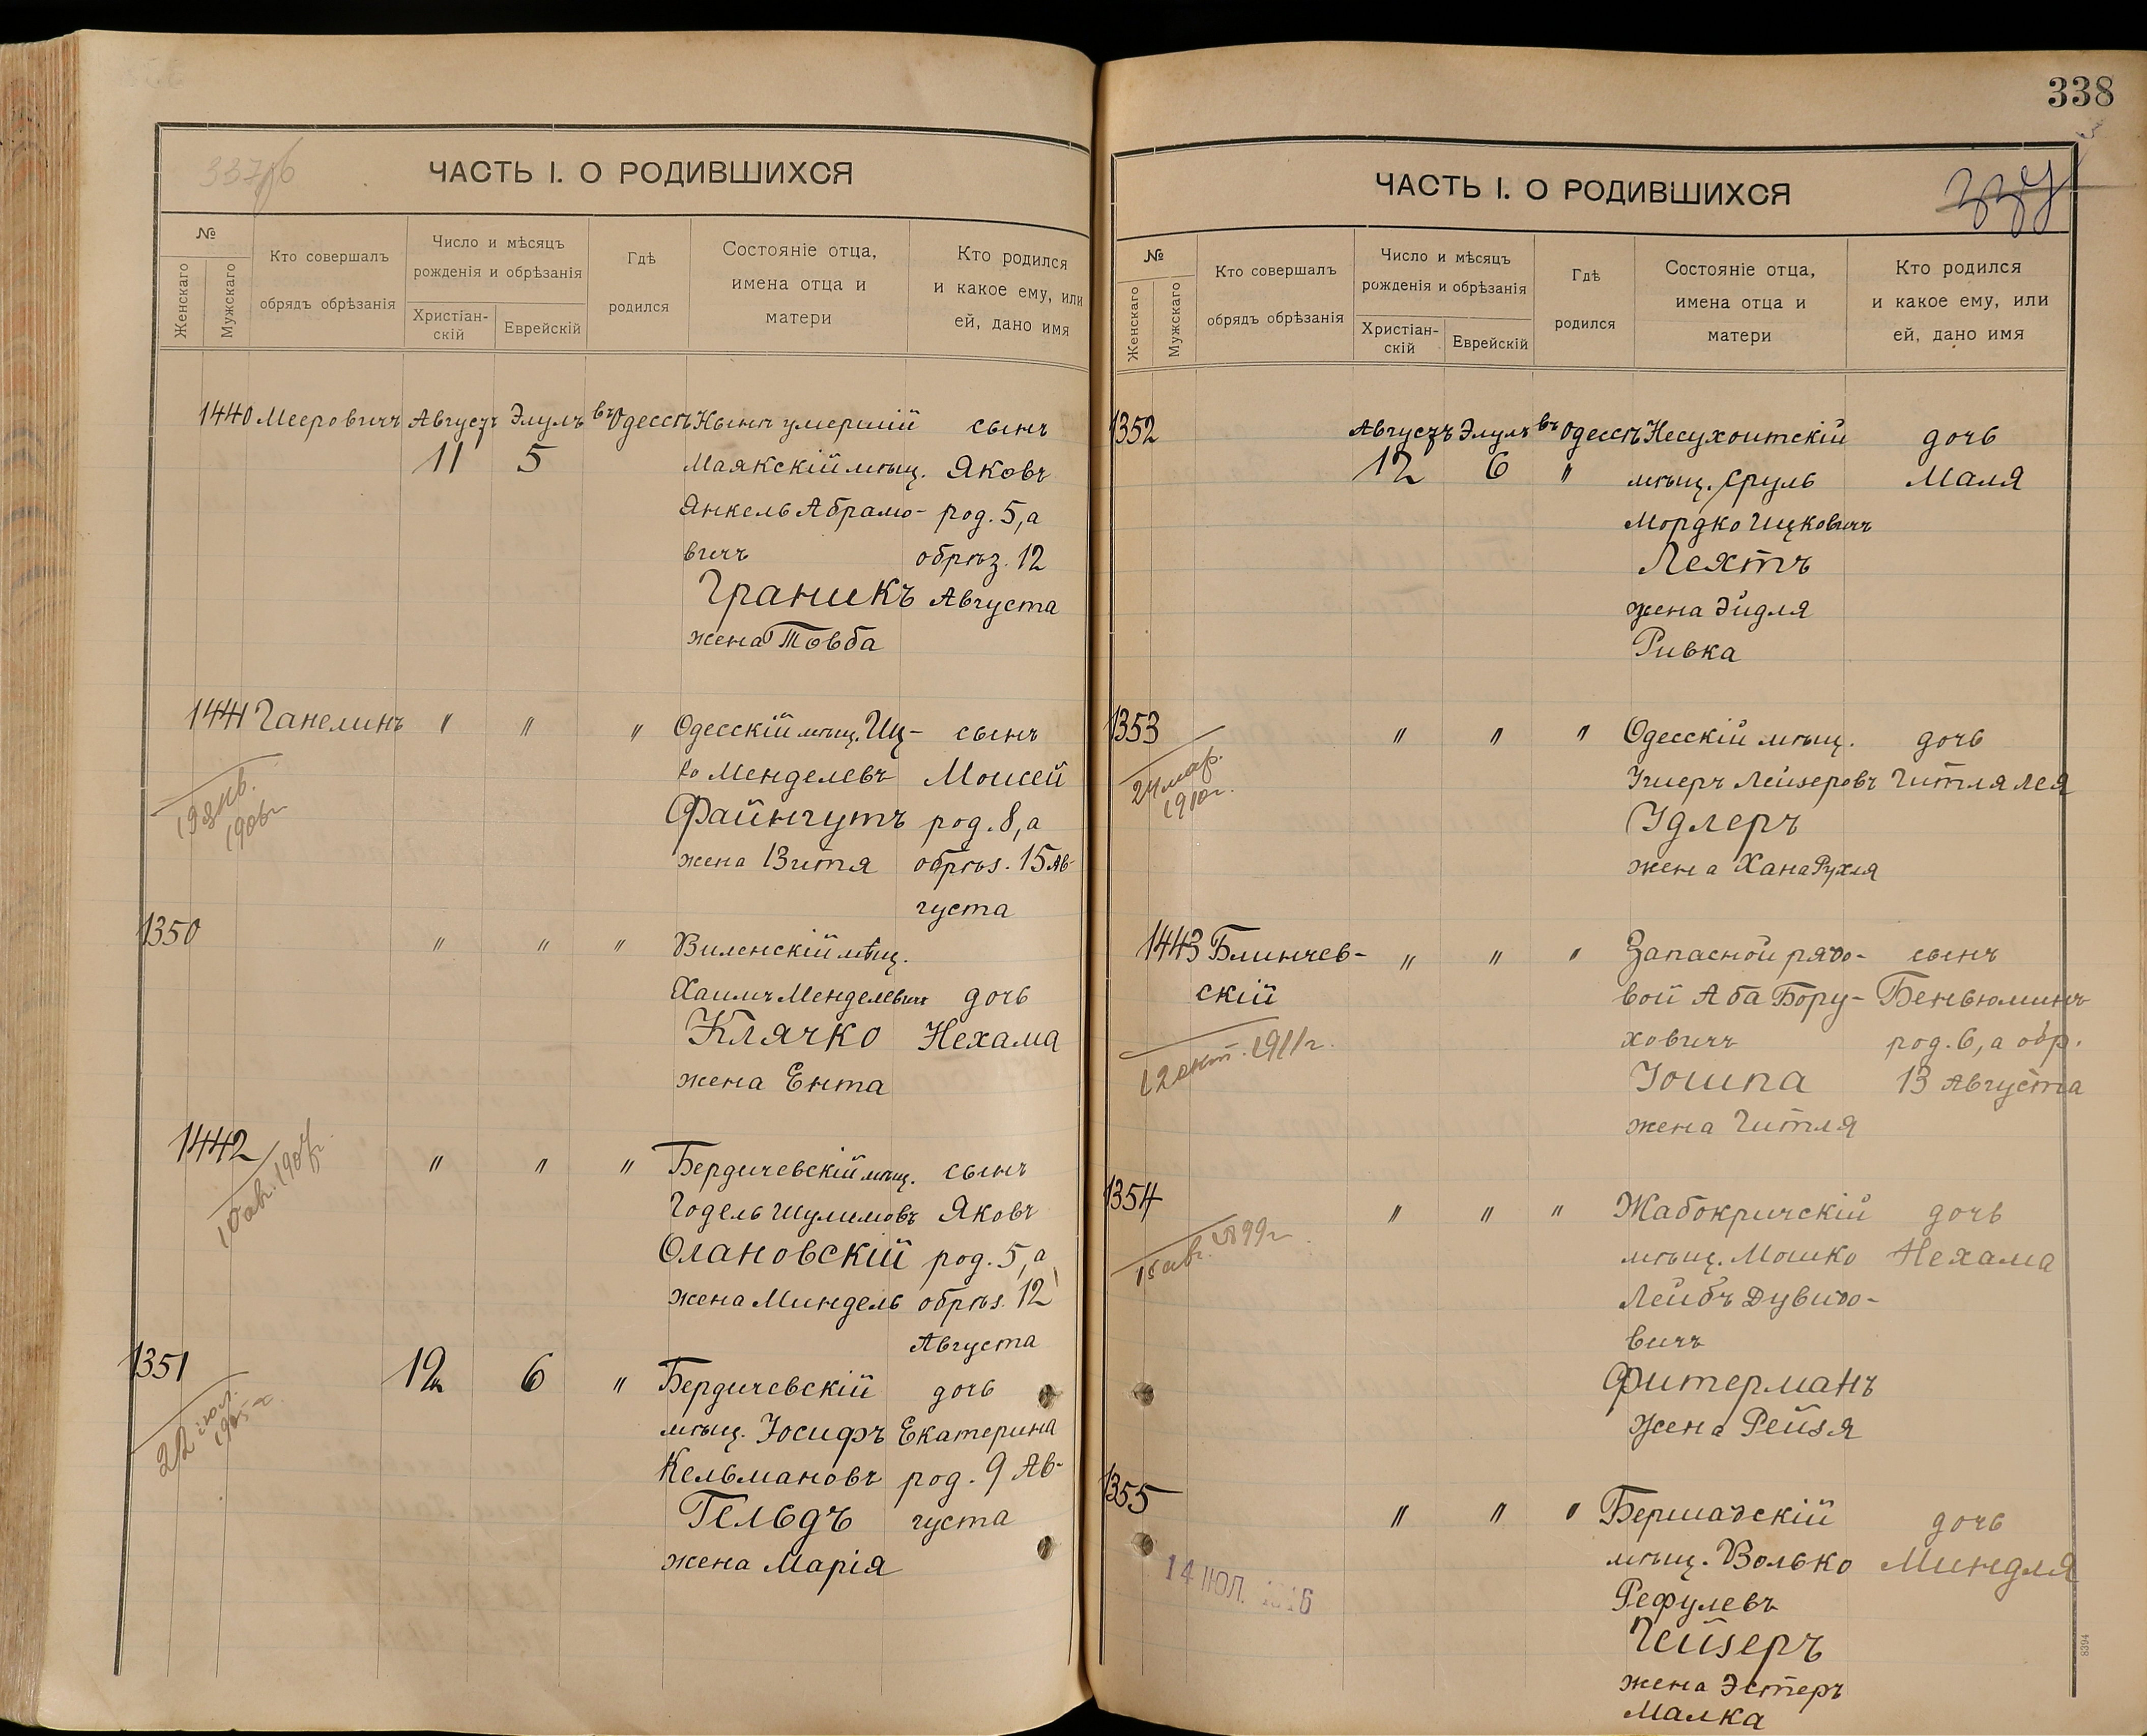 338
337
ЧАСТЬ I. О РОДИВШИХСЯ
№
Женскаго
Мужскаго
Кто совершалъ
обрядъ обрѣзанія
Число и мѣсяцъ
рожденія и обрѣзанія
Христіан-
скій
Еврейскій
Гдѣ
родился
Состояніе отца,
имена отца и
матери
Кто родился
и какое ему, или
ей, дано имя
1440 Мееровичъ Августъ Элулъ въ Одессѣ Нынѣ умершій сынъ
11 5 Маякскій мѣщ. Яковъ
Янкель Абрамо- род. 5, а
вичъ обрѣз. 12
Граникъ Августа
жена Товба
1441 Ганелинъ " " " Одесскій мѣщ. Иц- сынъ
ко Менделевъ Моисей
19 янв.
1906 г.
Файнгутъ род. 8, а
жена Витя обрѣз. 15 Ав-
густа
1350 " " " Виленскій мѣщ.
Хаимъ Менделевичъ дочь
Клячко Нехама
жена Ента
1442 " " " Бердичевскій мѣщ. сынъ
10 авг. 1907 г.
Годель Шулимовъ Яковъ
Олановскій род. 5, а
жена Миндель обрѣз. 12
Августа
1351 12 6 " Бердичевскій дочь
22 июл.
1905 г.
мѣщ. Іосифъ Екатерина
Кельмановъ род. 9 Ав-
Гельдъ густа
жена Марія
ЧАСТЬ I. О РОДИВШИХСЯ
337
№
Женскаго
Мужскаго
Кто совершалъ
обрядъ обрѣзанія
Число и мѣсяцъ
рожденія и обрѣзанія
Христіан-
скій
Еврейскій
Гдѣ
родился
Состояніе отца,
имена отца и
матери
Кто родился
и какое ему, или
ей, дано имя
1352 Августъ Элулъ въ Одессѣ Несухоитскій дочь
12 6 " мѣщ. Сруль Маля
Мордко Ицковичъ
Лехтъ
жена Эйдля
Ривка
1353 " " " Одесскій мѣщ. дочь
24 мар.
1910 г.
Ушеръ Лейзеровъ Гитля Лея
Удлеръ
жена Хана Рухля
1443 Блинчев- " " " Запасной рядо- сынъ
скій вой Аба Бору- Беньюминъ
12 окт. 1911 г.
ховичъ род. 6, а обр.
Іошпа 13 Августа
жена Гитля
1354 " " " Жабокричскій дочь
15 авг. 1899 г.
мѣщ. Мошко Нехама
Лейбъ Дувидо-
вичъ
Фитерманъ
жена Рейзя
1355 " " " Бершадскій дочь
мѣщ. Волько Миндля
14 ИЮЛ. 1916
Рефулевъ
Гейзеръ
жена Эстеръ
Малка
8394